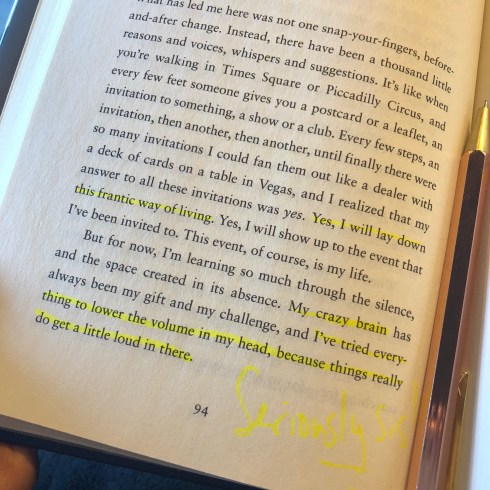 What has led me here was not one snap-your-fingers, before-
and-after change. Instead, there have been a thousand little
reasons and voices, whispers and suggestions. It's like when
you're walking in Times Square or Piccadilly Circus, and
every few feet someone gives you a postcard or a leaflet, an
invitation to something, a show or a club. Every few steps, an
invitation, then another, then another, until finally there were
so many invitations I could fan them out like a dealer with
a deck of cards on a table in Vegas, and I realized that my
answer to all these invitations was yes. Yes, I will lay down
this frantic way of living. Yes, I will show up to the event that
I've been invited to. This event, of course, is my life.
But for now, I'm learning so much through the silence,
and the space created in its absence. My crazy brain has
always been my gift and my challenge, and I've tried every-
thing to lower the volume in my head, because things really
do get a little loud in there.
94
Seriously